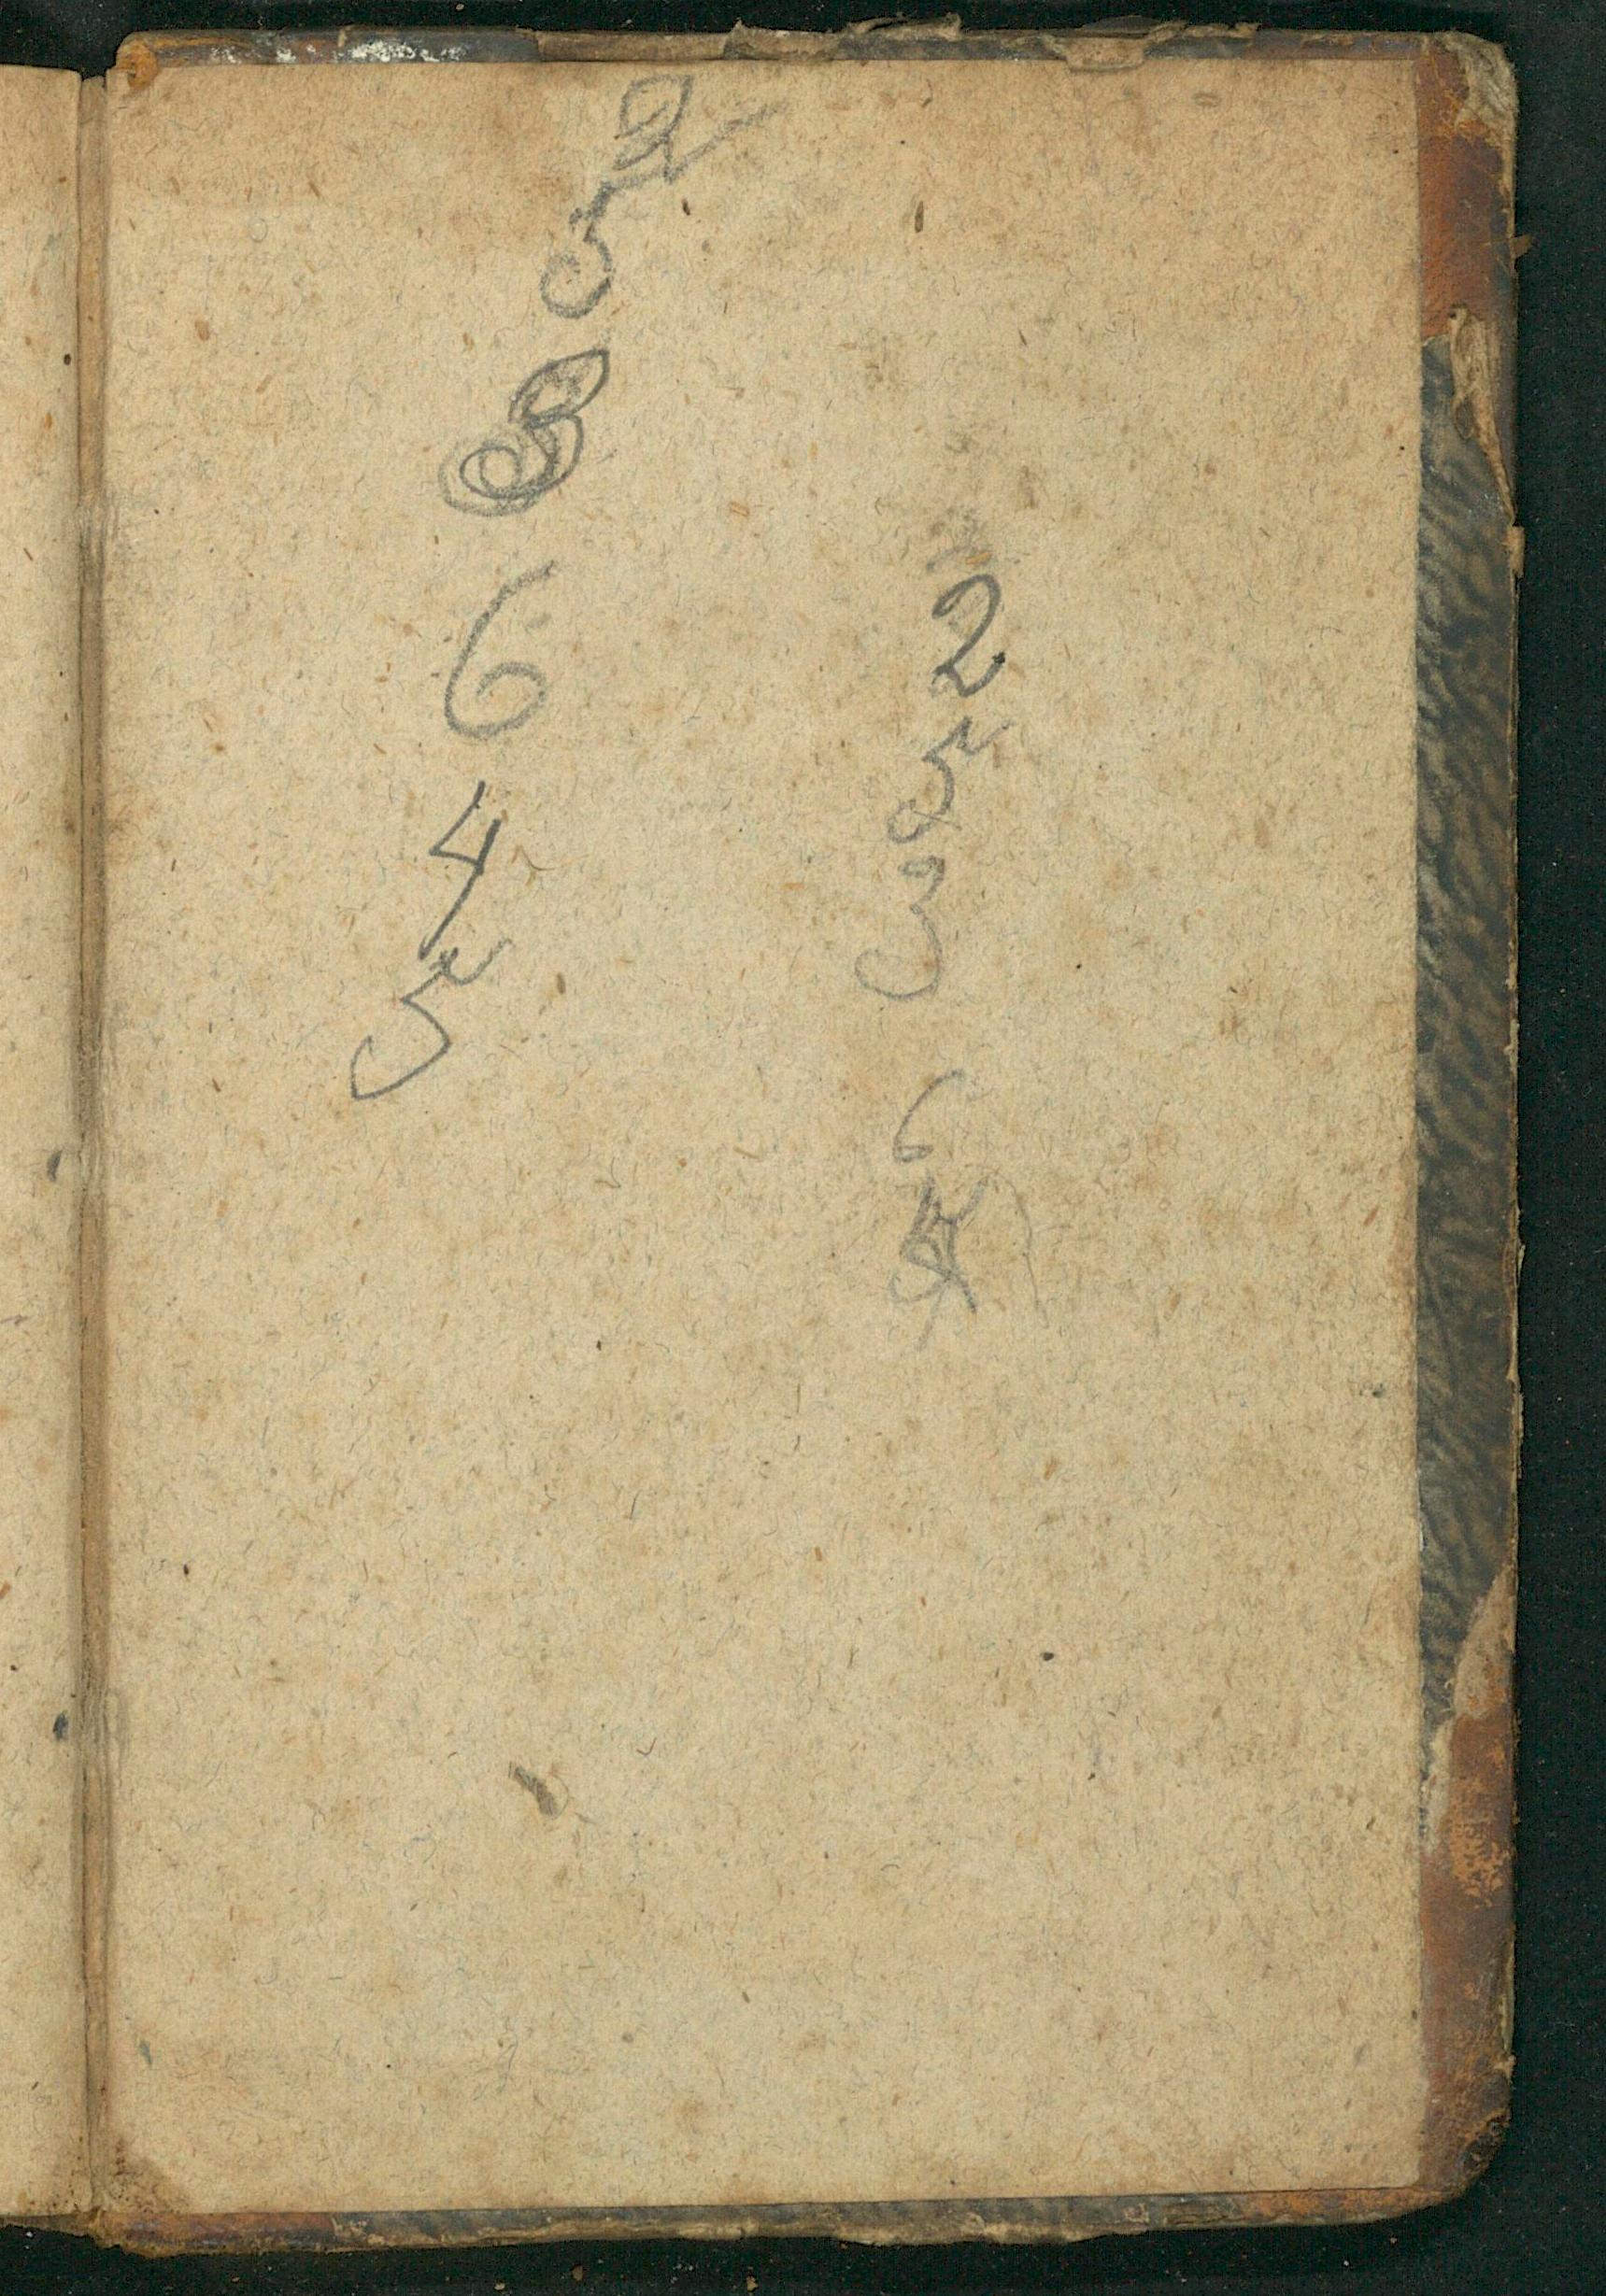 2
5
3
6
4
5
2
5
3
6